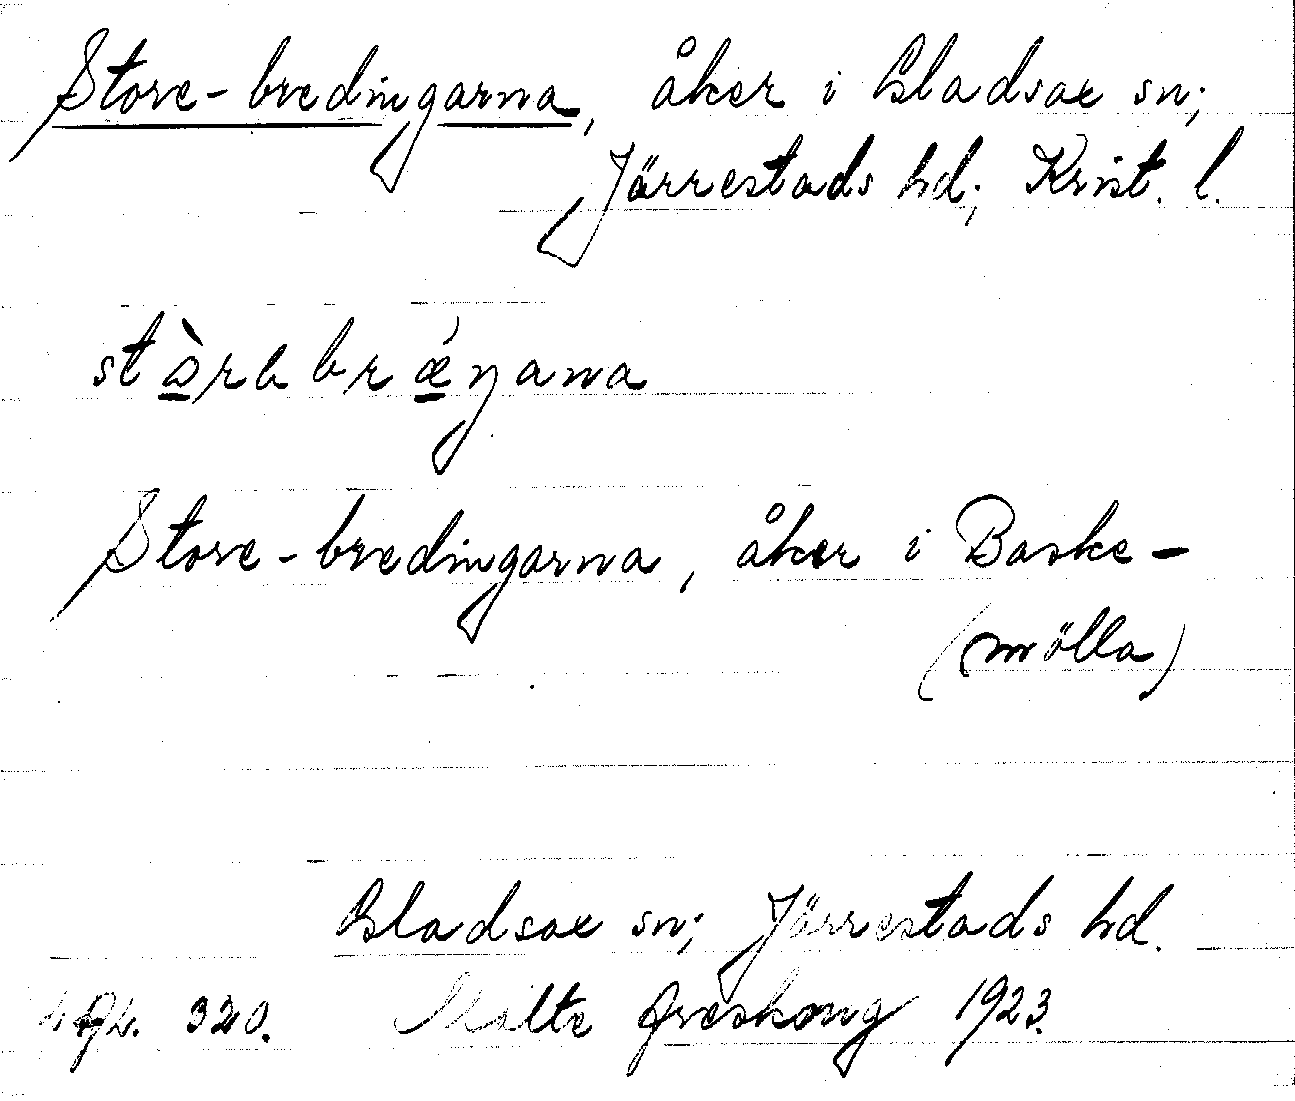 Store-bredingarna, åker i Gladsax sn;
Järrestads hd; Krist. l.
Store-bredingarna, åker i Baske-
(mölla)
Gladsax sn; Järrestads hd.
320. Malte Areskoug 1923.